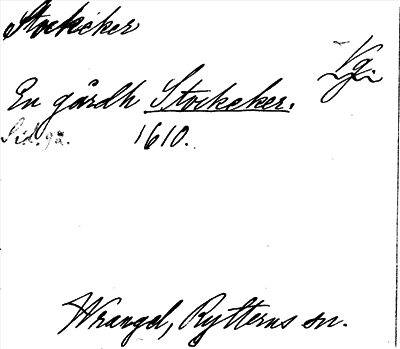 Stockeker
Vg.
En gårdh Stockeker.
Sid. 92. 1610.
Wrangel, Rytterns sn.